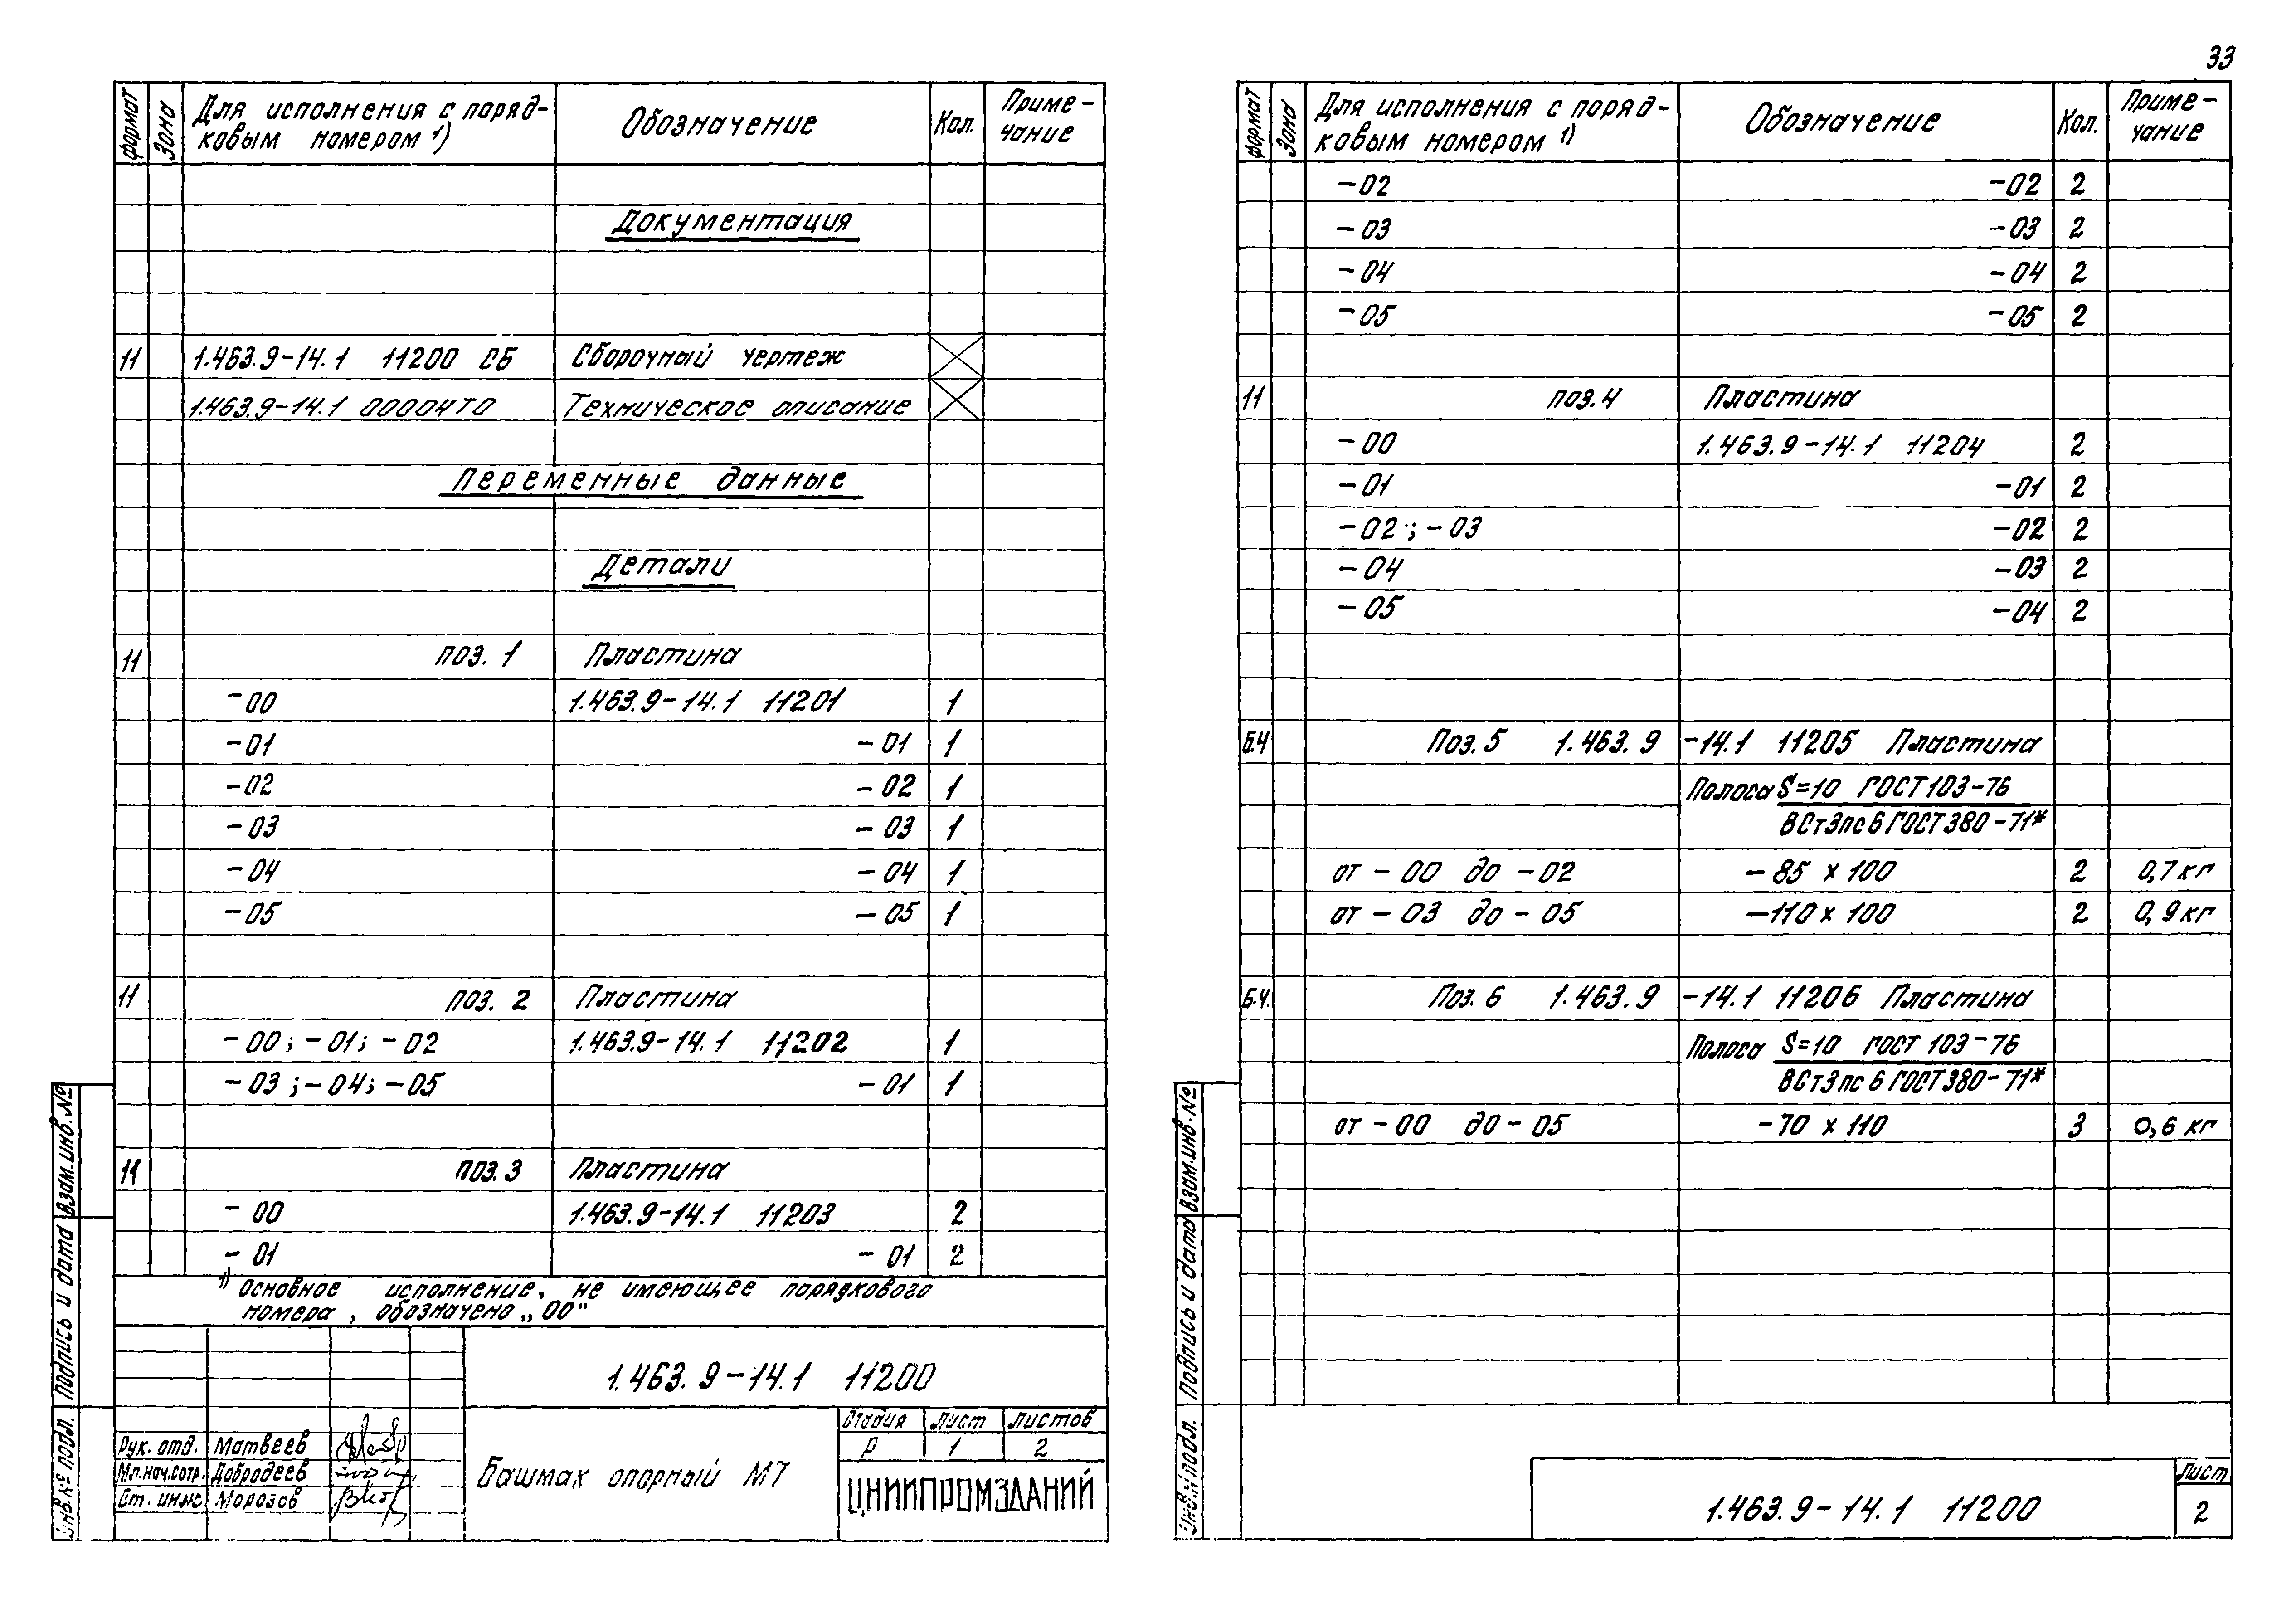 33
формат Зона Для исполнения с поряд- Обозначение Кол. Приме-
ковым номером 1) чание
Документация
11 1.463.9-14.1 11200 СБ Сборочный чертеж
1.463.9-14.1 0000ТО Техническое описание
Переменные данные
Детали
11 поз. 1 Пластина
-00 1.463.9-14.1 11201 1
-01 -01 1
-02 -02 1
-03 -03 1
-04 -04 1
-05 -05 1
11 поз. 2 Пластина
-00; -01; -02 1.463.9-14.1 11202 1
-03; -04; -05 -01 1
11 поз. 3 Пластина
-00 1.463.9-14.1 11203 2
-01 -01 2
1) Основное исполнение, не имеющее порядкового
номера, обозначено „00"
1.463.9-14.1 11200
Рук. отд. Матвеев
Мл.нач.сотр. Добродеев
Ст. инж Морозов
Башмак опорный М7
Стадия Лист Листов
Р 1 2
ЦНИИПРОМЗДАНИЙ
Взам.инв.№
Подпись и дата
Инв.№ подл.
формат Зона Для исполнения с поряд- Обозначение Кол. Приме-
ковым номером 1) чание
-02 -02 2
-03 -03 2
-04 -04 2
-05 -05 2
11 поз. 4 Пластина
-00 1.463.9-14.1 11204 2
-01 -01 2
-02; -03 -02 2
-04 -03 2
-05 -04 2
Б.Ч Поз. 5 1.463.9-14.1 11205 Пластина
Полоса S=10 ГОСТ 103-76
ВСт3пс6 ГОСТ 380-71*
от -00 до -02 -85 х 100 2 0,7 кг
от -03 до -05 -110 х 100 2 0,9 кг
Б.Ч. Поз. 6 1.463.9-14.1 11206 Пластина
Полоса S=10 ГОСТ 103-76
ВСт3пс6 ГОСТ 380-71*
от -00 до -05 -70 х 110 3 0,6 кг
Взам.инв.№
Подпись и дата
Инв.№ подл.
1.463.9-14.1 11200
Лист
2